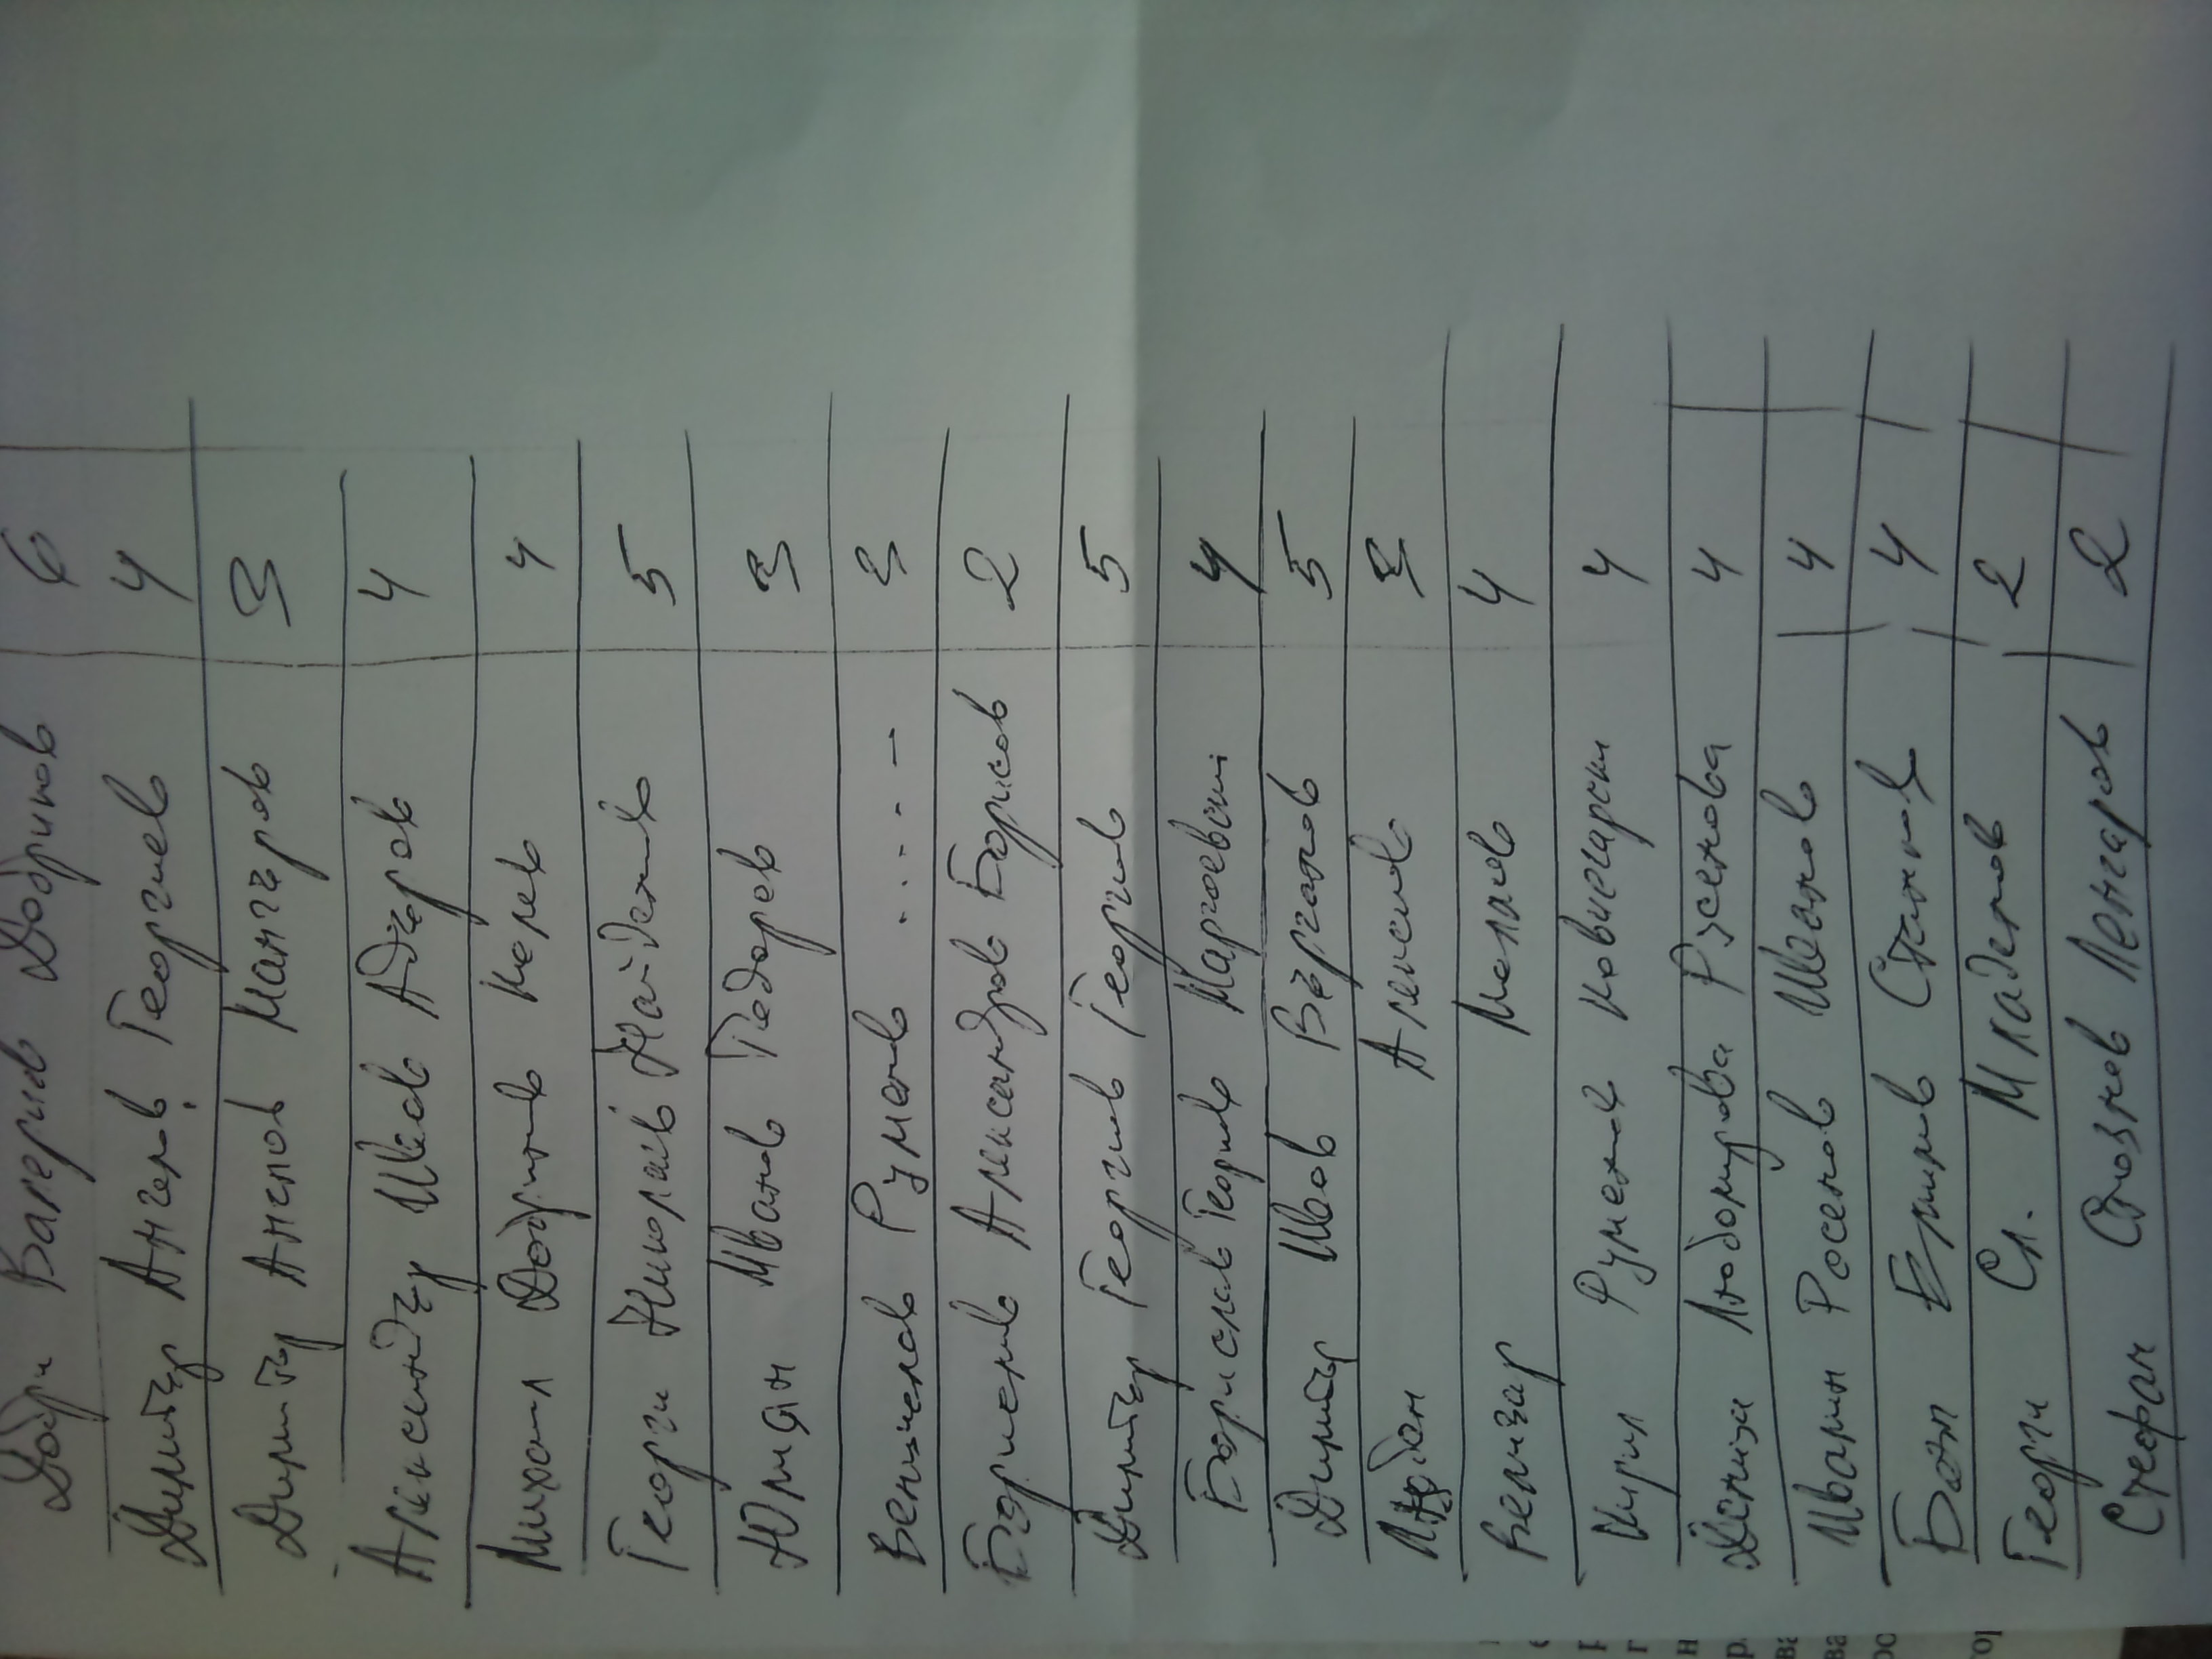 Добри Валериев Добринов 6
Димитър Ангелов Георгиев 4
Димитър Ангелов Мангъров 3
Александър Ивов Адъров 4
Михаил Добринов Келев 4
Георги Николаев Найденов 5
Юлиян Иванов Тодорев 3
Венислав Руменов 3
Борислав Александров Борисов 2
Димитър Георгиев Георгиев 5
Борислав Георгиев 4
Димитър Ивов Върганов 5
Алексиев 3
Велизар Малаев 4
Кирил Руменов 4
Деница Любомирова Русенова 4
Иван Росенов Иванов 4
Боян Емилов Стоянов 4
Георги Сл. Младенов 2
Стефан Стоянов Ленгаров 2